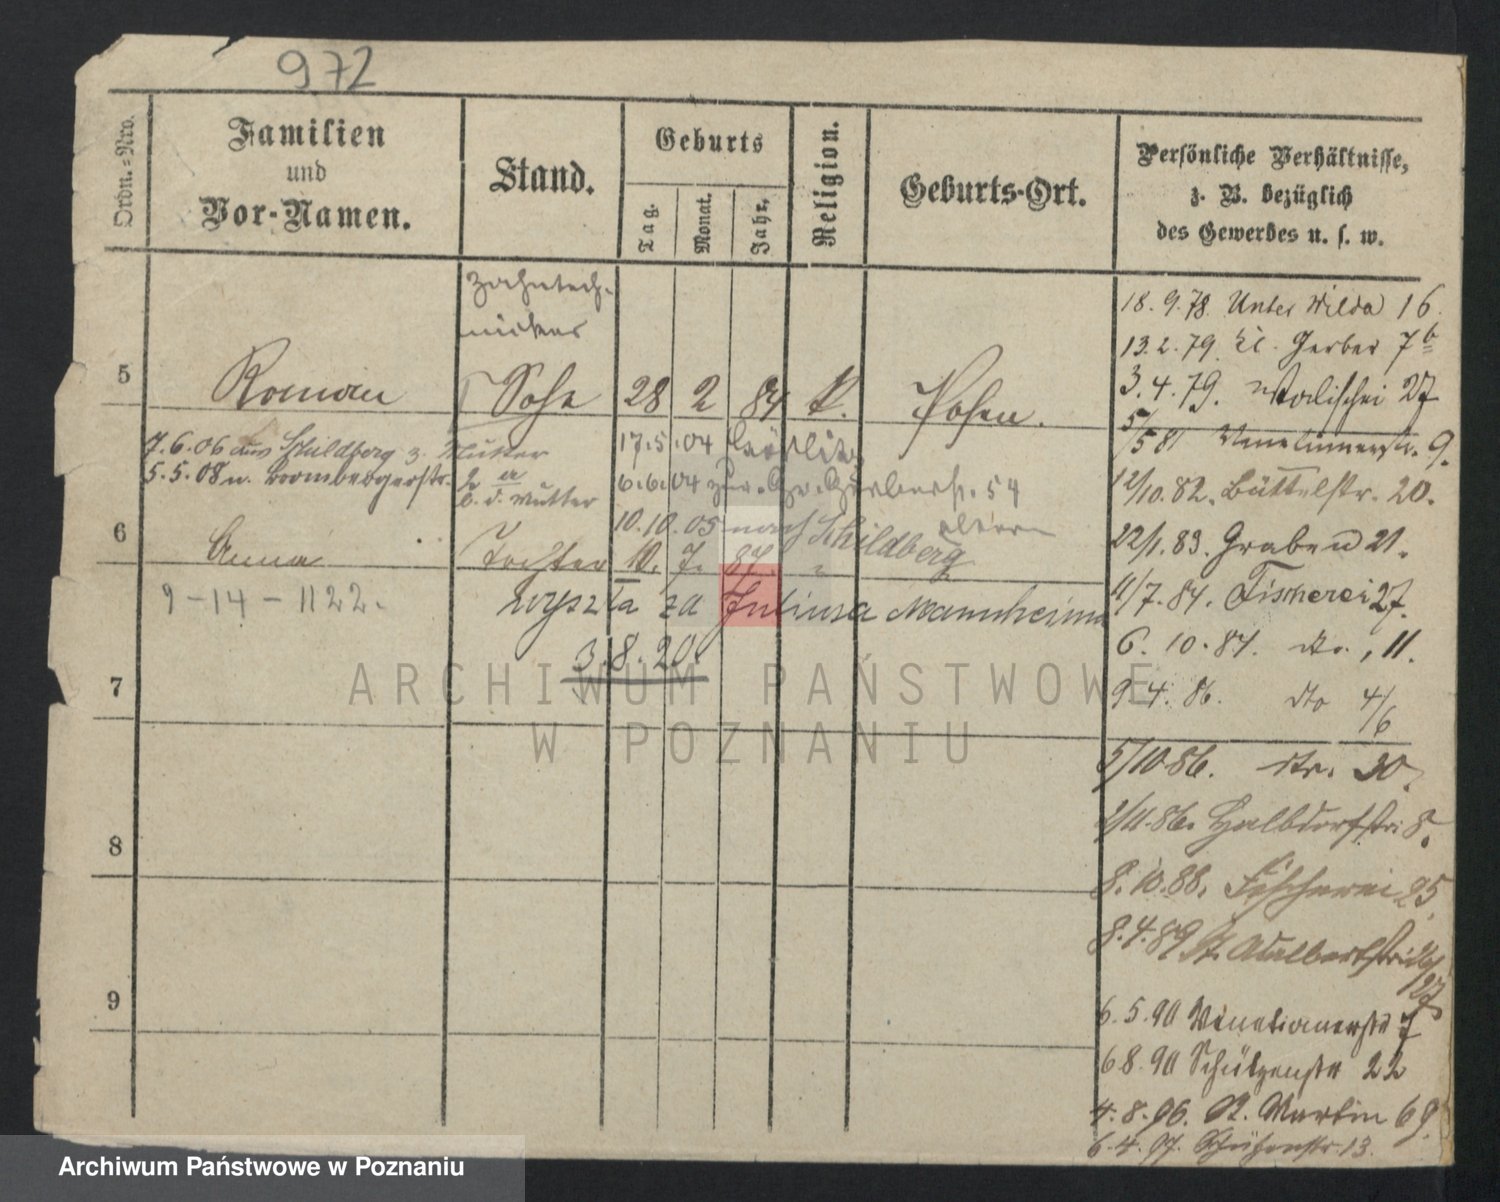 972
Ordn.=Nro.
Familien
und
Vor-Namen.
Stand.
Geburts
Tag.
Monat.
Jahr.
Religion.
Geburts-Ort.
Persönliche Verhältnisse,
z. B. bezüglich
des Gewerbes u. s. w.
Zahntech-
niker
5 Roman Sohn 28 2 84 k. Posen.
7.6.06 aus Schildberg z. Mutter
5.5.08 n. Brombergerstr.
b. d. Mutter
17.5.04 Görlitz
6.6.04 zur. Gr. Gerberstr. 54
10.10.05 nach Schildberg
6 Anna Tochter 10. 7. 87. "
9-14-1122.
wyszła za Juliusa Mannheima
3.8.20.
7
8
9
18.9.78 Unter Wilda 16
13.2.79. Kl. Gerber 7b
3.4.79. Wallischei 27
5/5 81 Venetianerstr. 9.
12/10.82. Büttelstr. 20.
22/1.83. Graben 21.
11/7.84. Fischerei 27.
6.10.84. dto. 11.
9.4.86. dto 4/6
5/10.86. dto. 30.
2/11.86. Halbdorfstr. 8.
8.10.88. Fischerei 25.
8.4.89 St. Adalbertstr. 26/27
6.5.90 Venetianerstr 7
6.8.90 Schützenstr 22
4.8.96. St. Martin 69.
6.4.97. Schützenstr. 13.
ARCHIWUM PAŃSTWOWE
W POZNANIU
Archiwum Państwowe w Poznaniu